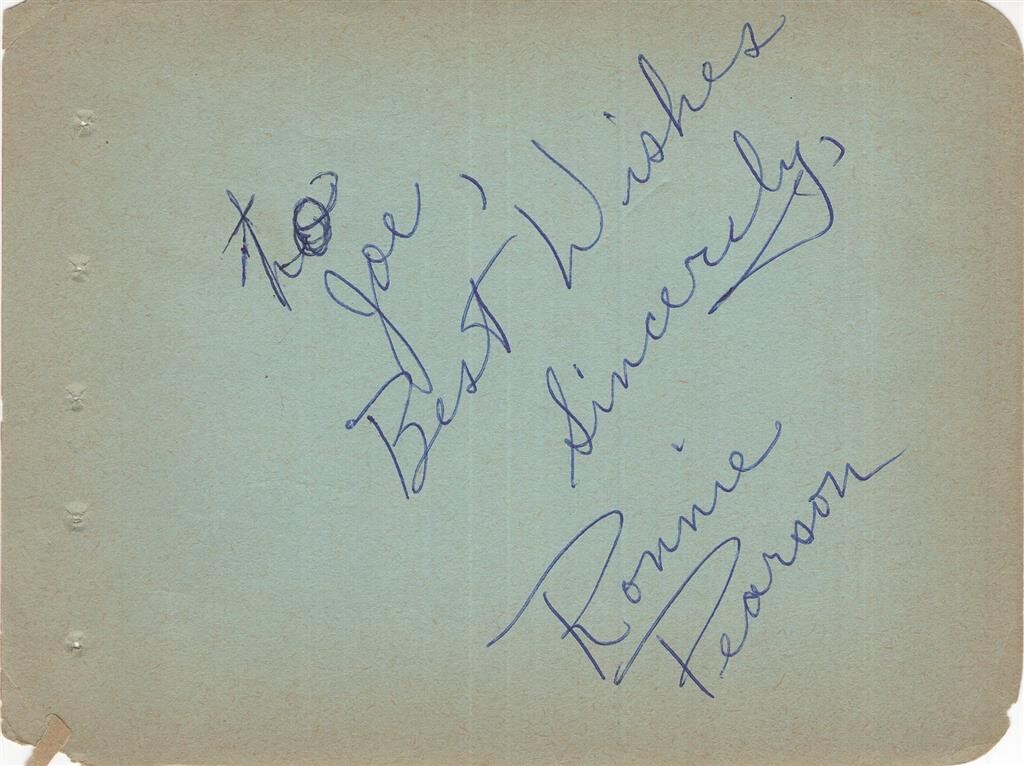 To
Joe,
Best Wishes
Sincerely,
Ronnie
Pearson